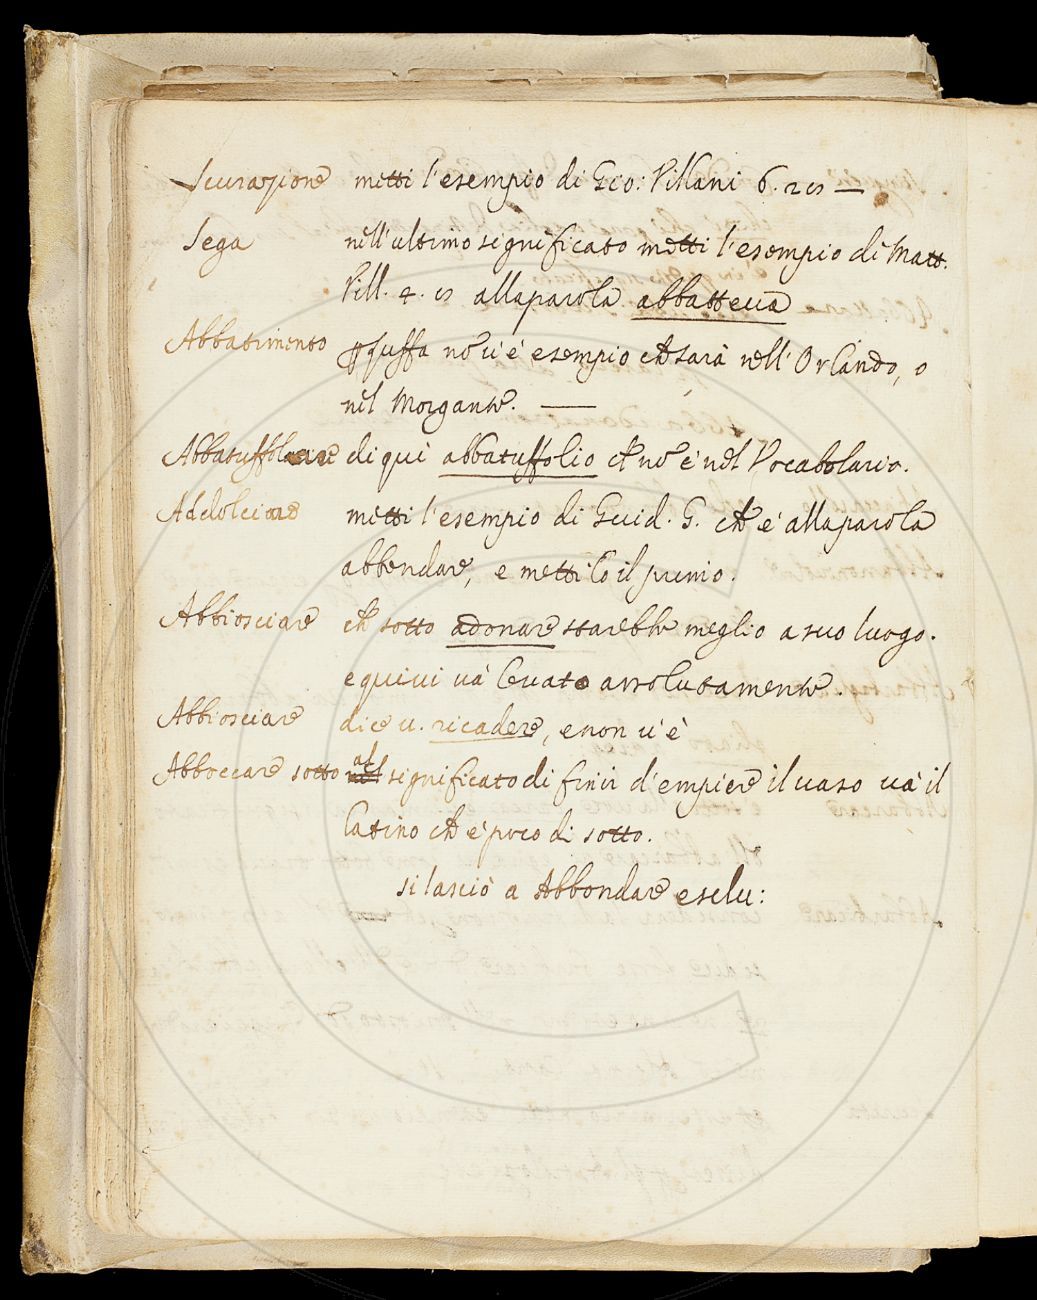 Scurazione metti l'esempio di Gio: Villani 6. 25 —
Sega nell'ultimo significato metti l'esempio di Matt.
Vill. 4. 15 alla parola abbatteva
Abbatimento p zuffa nō v'è esempio chē sarà nell'Orlando, o
nel Morgante. —
Abbatuffolare di quì abbatuffolio chē nō è nel Vocabolario.
Addolciare metti l'esempio di Guid. G. chē è alla parola
abbendare, e mettilo il primo.
Abbiosciare chē sotto adonare starebbe meglio a suo luogo.
e quivi và levato assolutamente.
Abbiosciare dice v. ricadere, e non v'è
Abboccare sotto al significato di finir d'empiere il vaso và il
latino chē è poco di sotto.
si lasciò a Abbondare esclu: